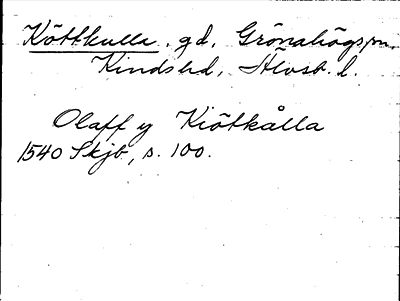 Köttkulla. gd, Grönahögs sn.
Kinds hd, Älvsb. l.
Olaff y Kiötkålla
1540 Skjb, s. 100.